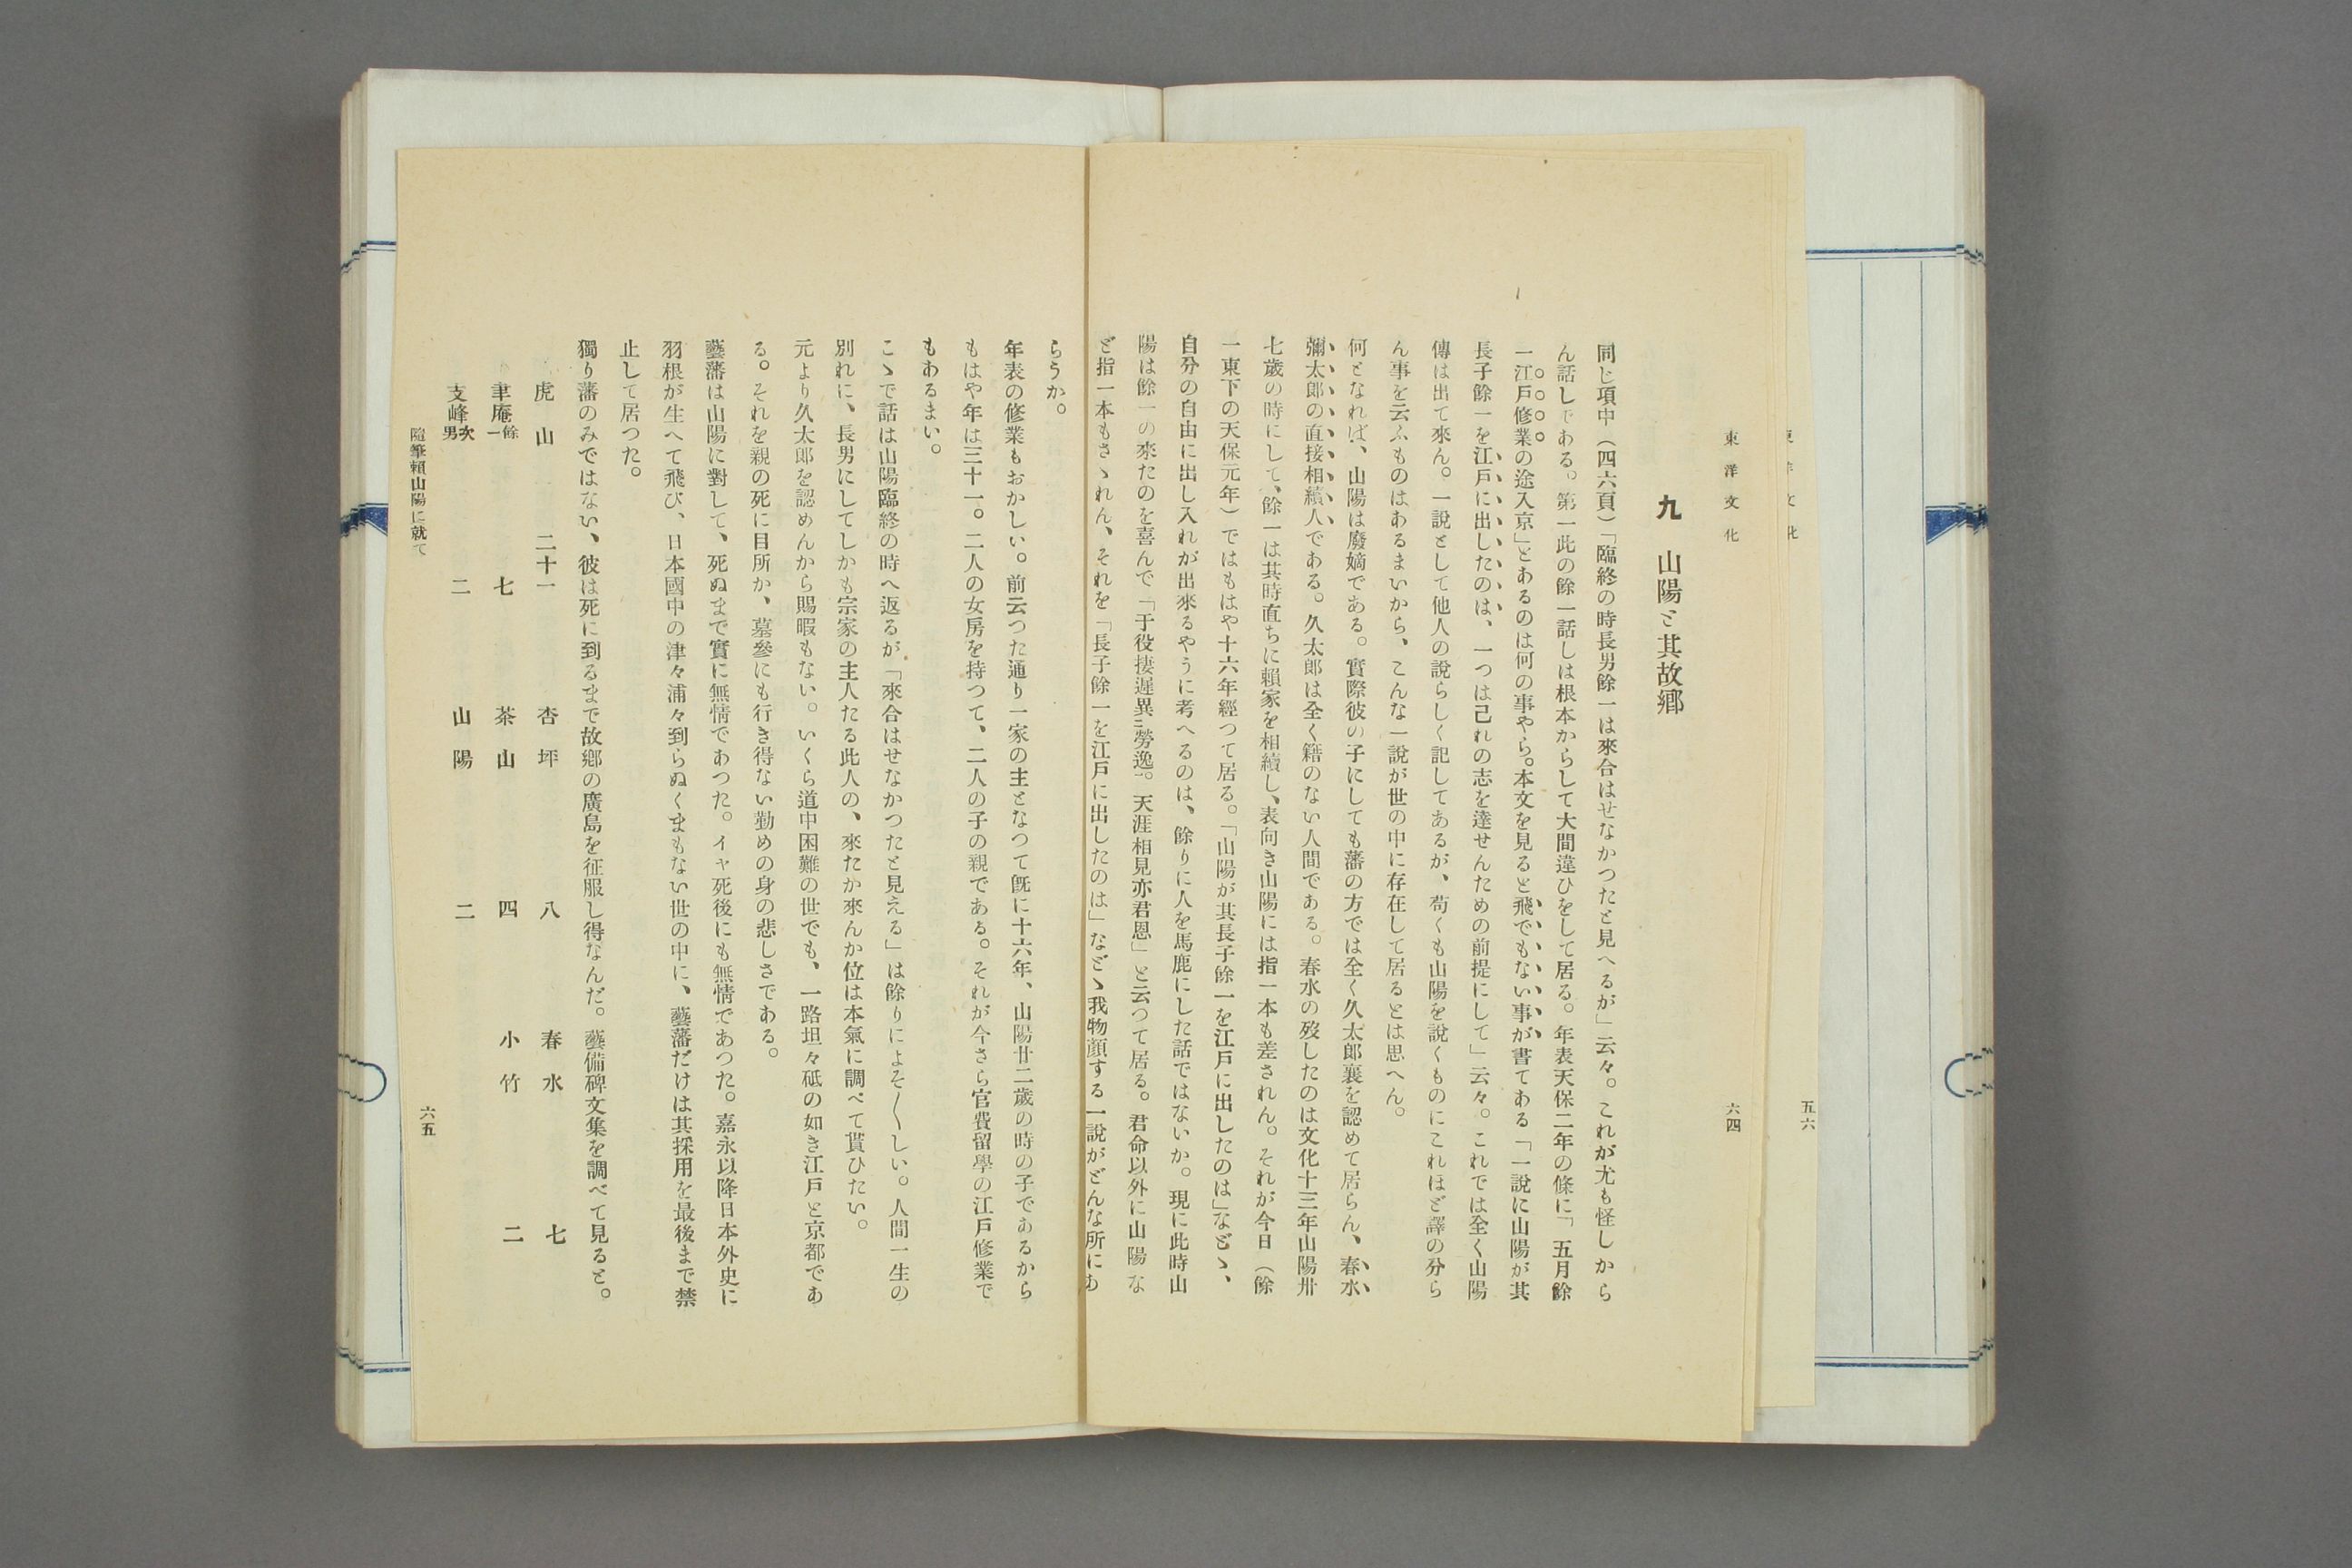 五六
東洋文化
六四
九　山陽と其故鄕
同じ項中（四六頁）「臨終の時長男餘一は來合はせなかつたと見へるが」云々。これが尤も怪しから
ん話しである。第一此の餘一話しは根本からして大間違ひをして居る。年表天保二年の條に「五月餘
一江戸修業の途入京」とあるのは何の事やら。本文を見ると飛でもない事が書てある「一說に山陽が其
長子餘一を江戸に出したのは、一つは己れの志を達せんための前提にして」云々。これでは全く山陽
傳は出て來ん。一說として他人の說らしく記してあるが、苟くも山陽を說くものにこれほど譯の分ら
ん事を云ふものはあるまいから、こんな一說が世の中に存在して居るとは思へん。
何となれば、山陽は廢嫡である。實際彼の子にしても藩の方では全く久太郞襄を認めて居らん、春水
彌太郞の直接相續人である。久太郞は全く籍のない人間である。春水の歿したのは文化十三年山陽卅
七歲の時にして、餘一は其時直ちに賴家を相續し、表向き山陽には指一本も差されん。それが今日（餘
一東下の天保元年）ではもはや十六年經つて居る。「山陽が其長子餘一を江戸に出したのは」などゝ、
自分の自由に出し入れが出來るやうに考へるのは、餘りに人を馬鹿にした話ではないか。現に此時山
陽は餘一の來たのを喜んで「于役捿遲異﹅勞逸。天涯相見亦君恩」と云つて居る。君命以外に山陽な
ど指一本もさゝれん、それを「長子餘一を江戸に出したのは」などゝ我物顏する一說がどんな所にあ
らうか。
年表の修業もおかしい。前云つた通り一家の主となつて旣に十六年、山陽廿二歲の時の子であるから
もはや年は三十一。二人の女房を持つて、二人の子の親である。それが今さら官費留學の江戸修業で
もあるまい。
こゝで話は山陽臨終の時へ返るが「來合はせなかつたと見える」は餘りによそ〱しい。人間一生の
別れに、長男にしてしかも宗家の主人たる此人の、來たか來んか位は本氣に調べて貰ひたい。
元より久太郞を認めんから賜暇もない。いくら道中困難の世でも、一路坦々砥の如き江戸と京都であ
る。それを親の死に目所か、墓參にも行き得ない勤めの身の悲しさである。
藝藩は山陽に對して、死ぬまで實に無情であつた。イヤ死後にも無情であつた。嘉永以降日本外史に
羽根が生へて飛び、日本國中の津々浦々到らぬくまもない世の中に、藝藩だけは其採用を最後まで禁
止して居つた。
獨り藩のみではない、彼は死に到るまで故鄕の廣島を征服し得なんだ。藝備碑文集を調べて見ると。
虎山　二十一　杏坪　八　春水　七
聿庵餘一　七　茶山　四　小竹　二
支峰次男　二　山陽　二
隨筆賴山陽に就て
六五